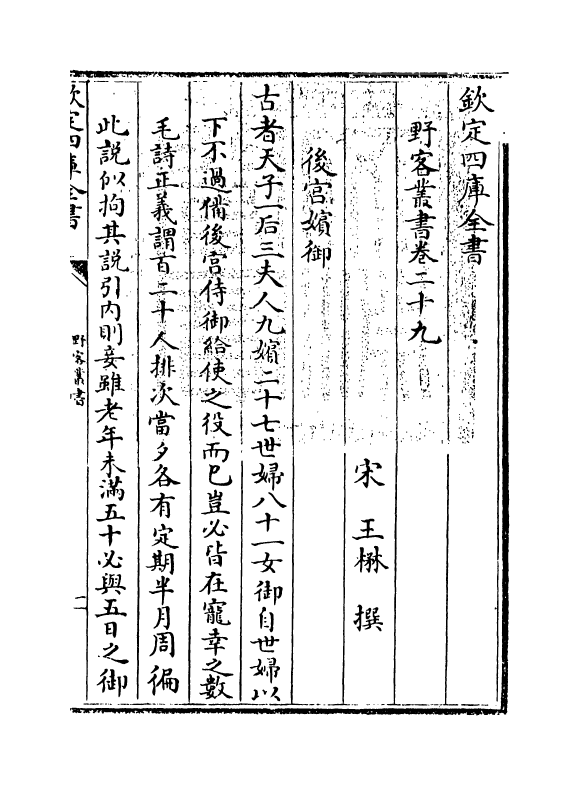 欽定四庫全書
野客叢書卷二十九
宋 王楙 撰
後宮嬪御
古者天子一后三夫人九嬪二十七世婦八十一女御自世婦以
下不過備後宮侍御給使之役而已豈必皆在寵幸之數
毛詩正義謂百二十人排次當夕各有定期半月周徧
此説似拘其説引内則妾雖老年未滿五十必與五日之御
欽定四庫全書
野客叢書